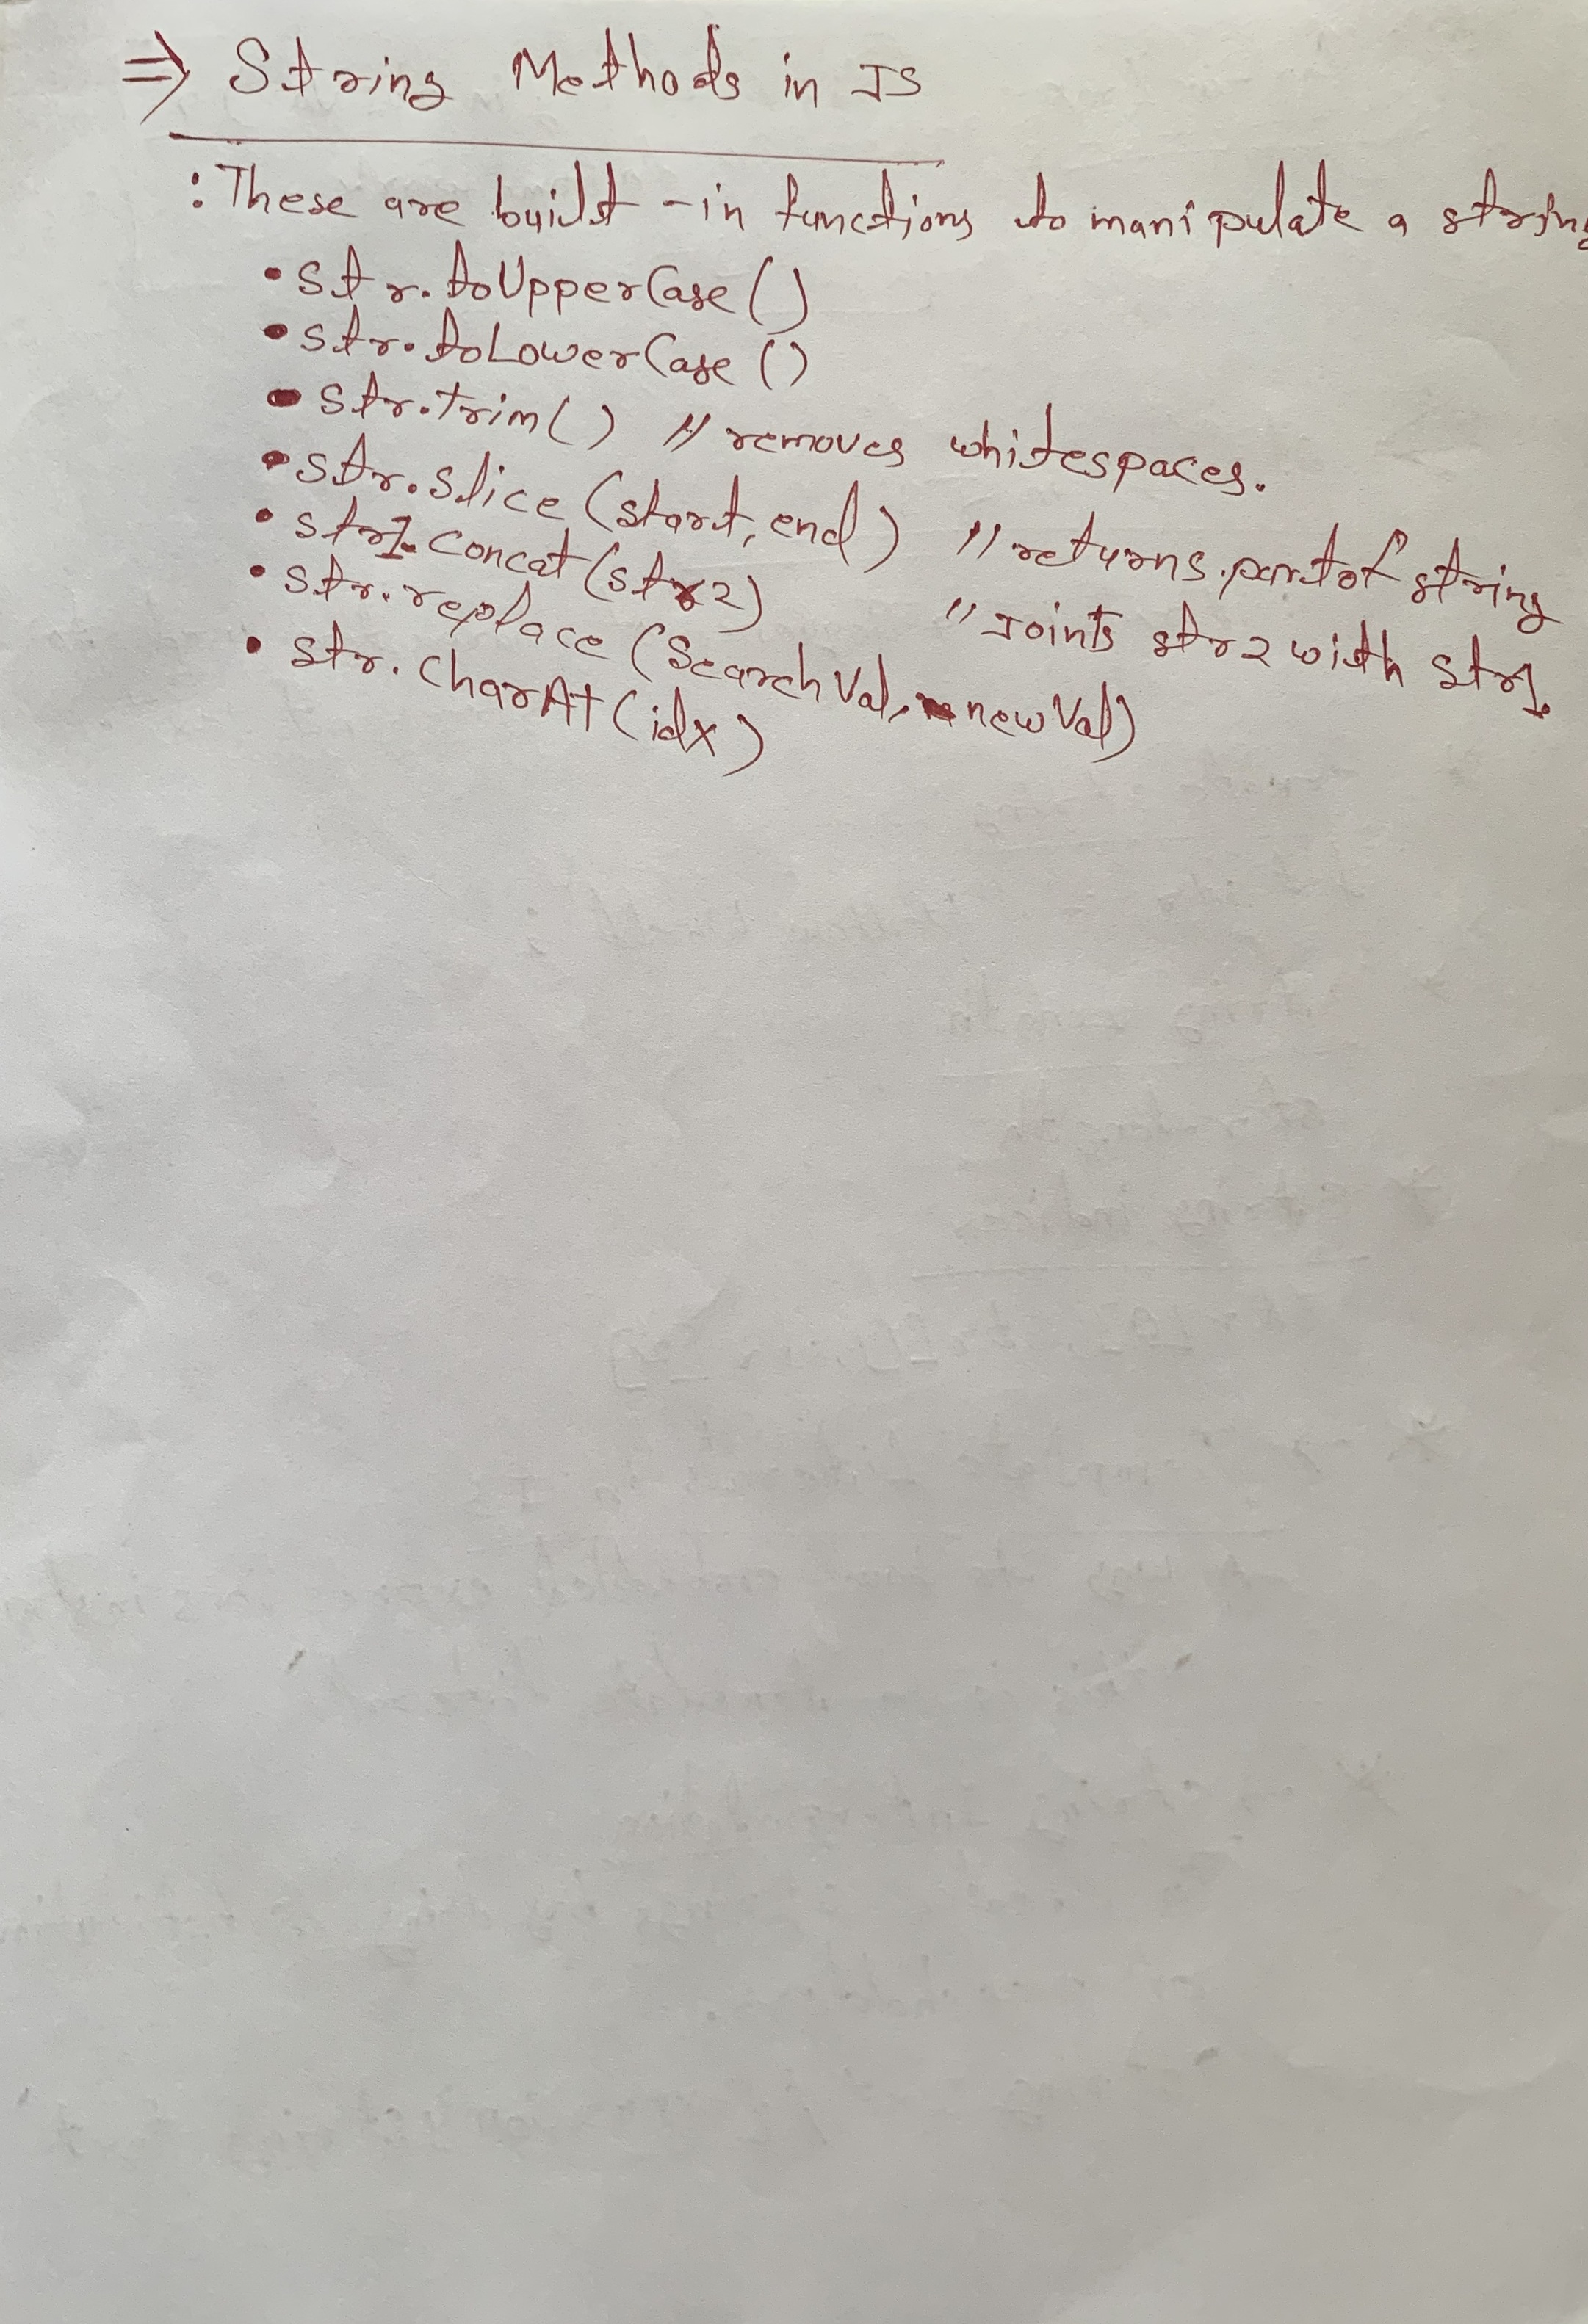 ⇒ String Methods in JS
: These are built-in functions to manipulate a string
• str.toUpperCase()
• str.toLowerCase()
• str.trim() // removes whitespaces.
• str.slice(start, end) // returns part of string
• str1.concat(str2) // Joints str2 with str1.
• str.replace(SearchVal, newVal)
• str.charAt(idx)